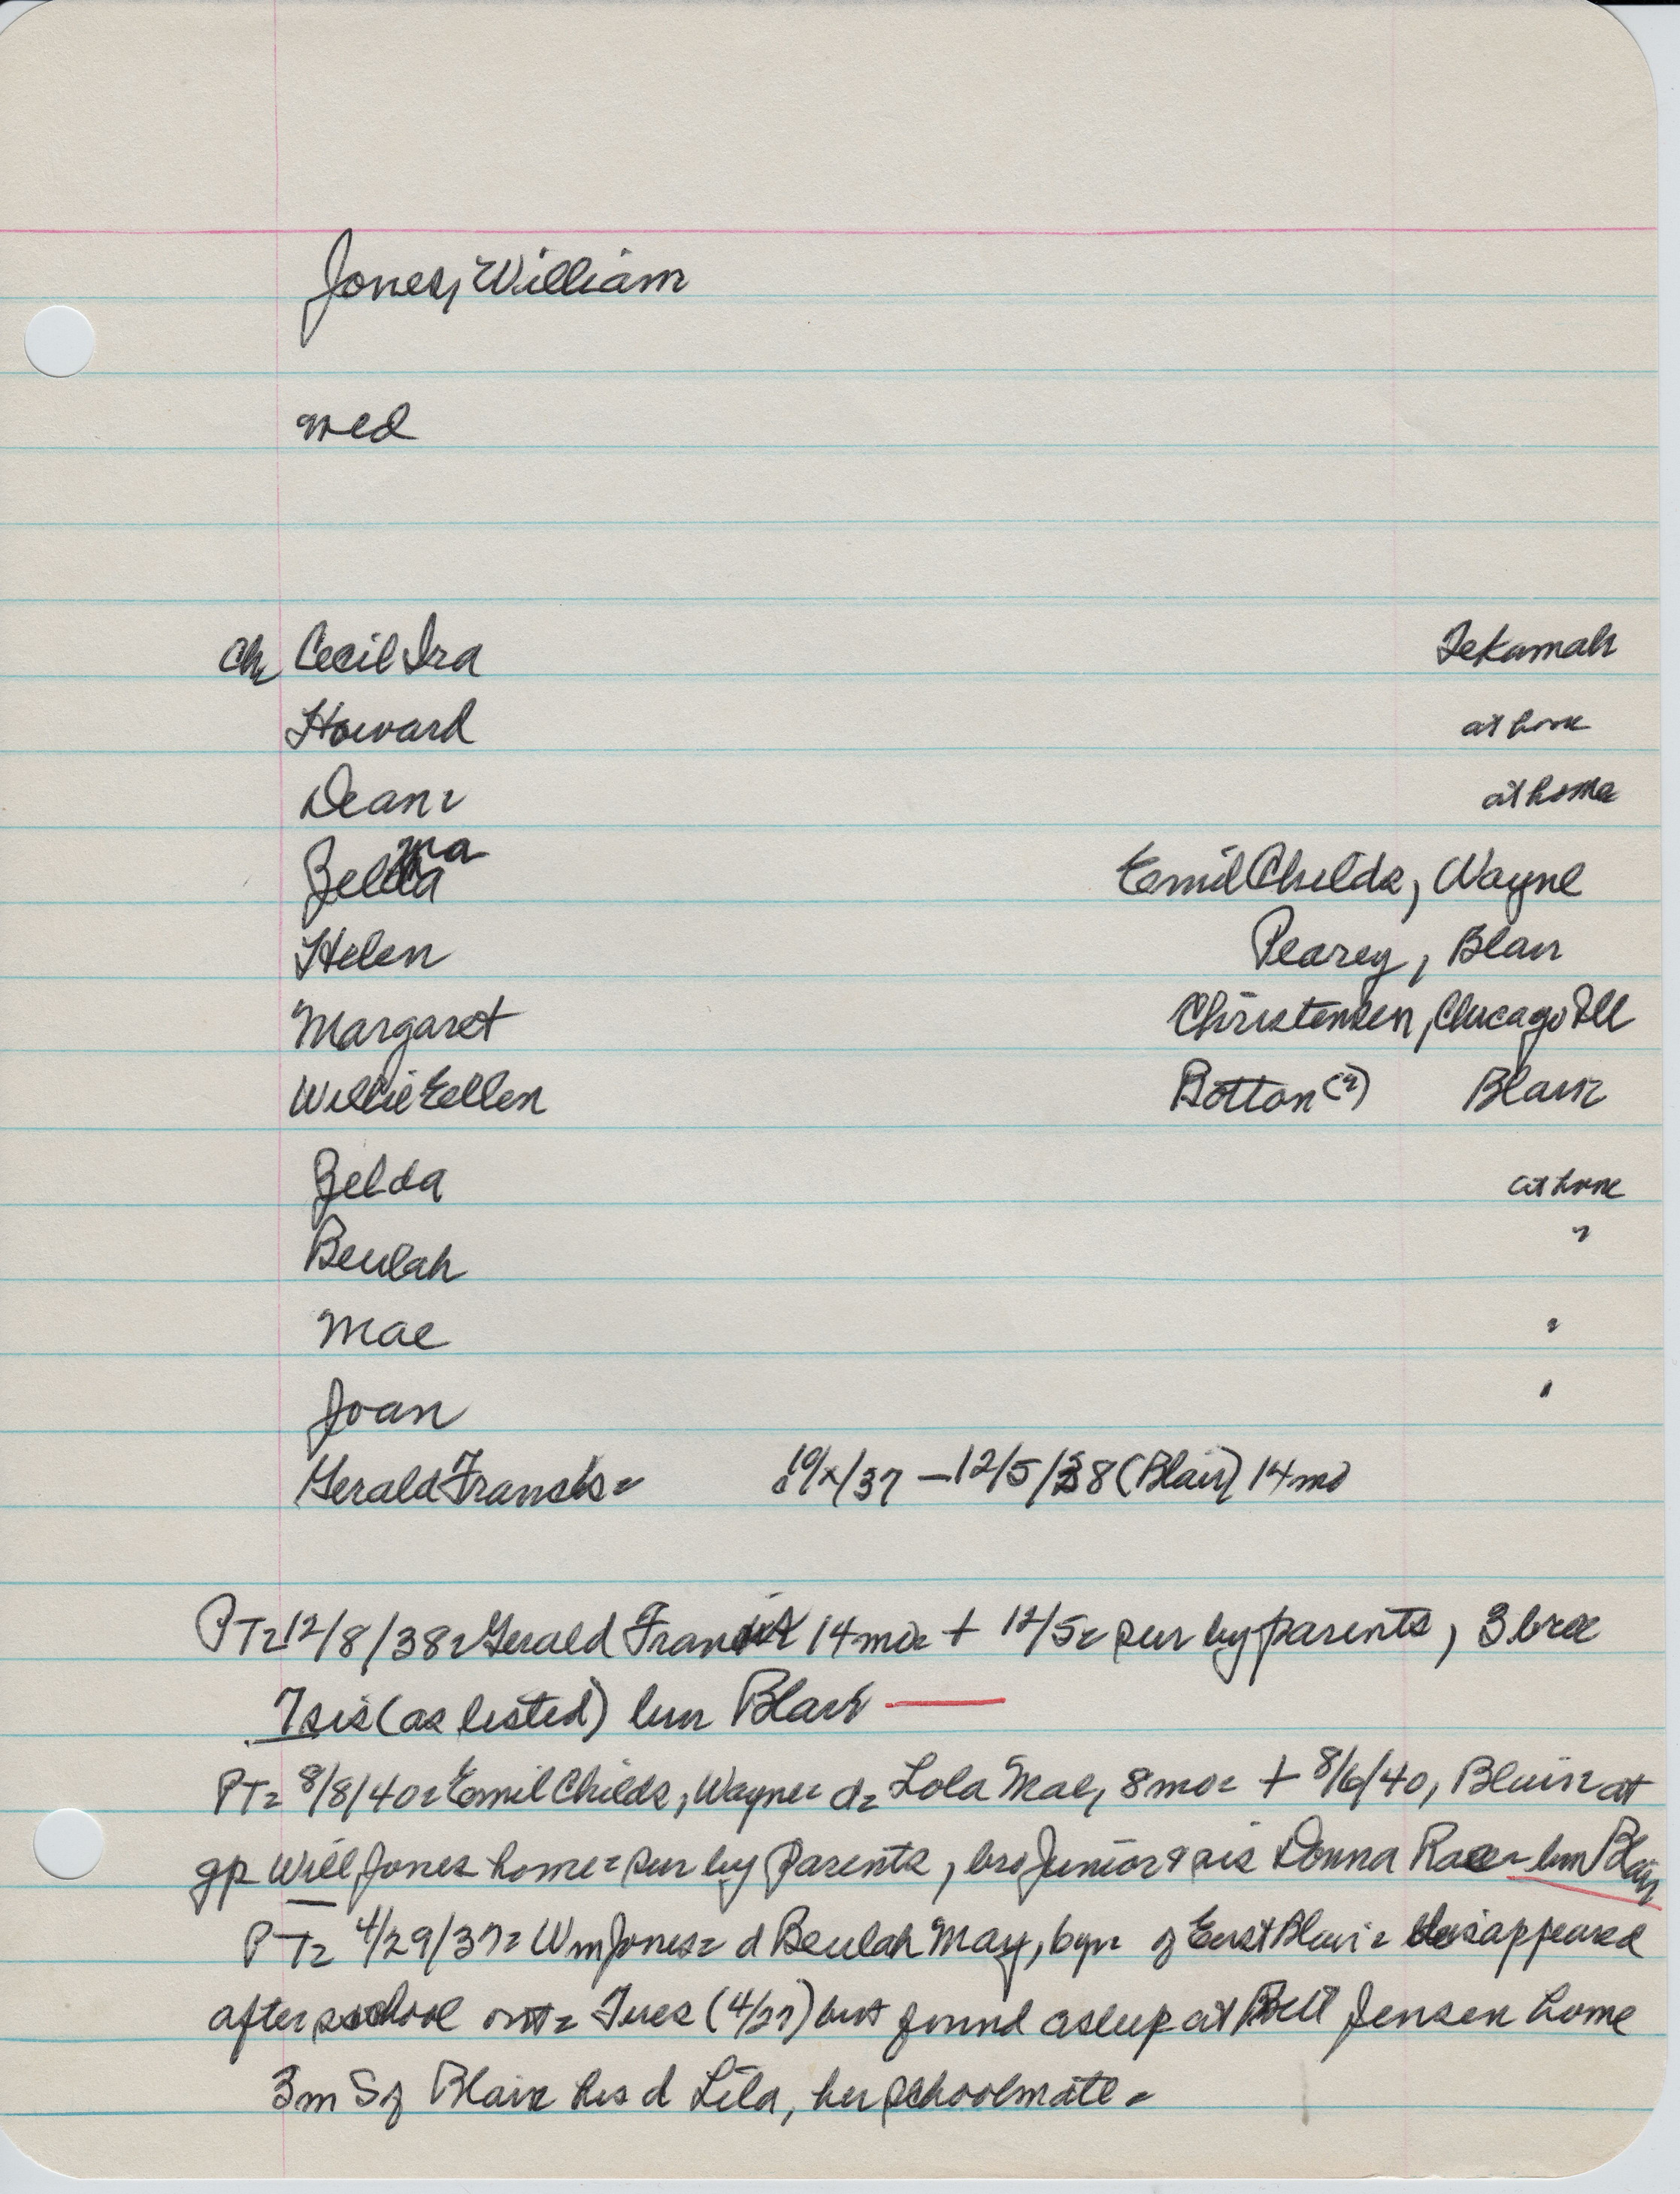 Jones, William
med
Ch Cecil Ira Tekamah
Howard at home
Dean = at home
Zelma Emil Childs, Wayne
Helen Pearcy, Blair
Margaret Christensen, Chicago Ill
Willie Ellen Botton (?) Blair
Zelda at home
Beulah "
Mae "
Joan "
Gerald Francis = 10/x/37 – 12/5/38 (Blair) 14 mo
PT= 12/8/38= Gerald Francis 14 mo= + 12/5= sur by parents, 3 bros
7 sis (as listed) bur Blair —
PT= 8/8/40= Emil Childs, Wayne= d= Lola Mae, 8 mo= + 8/6/40, Blair= at
gp Will Jones home= sur by Parents, bro Junior & sis Donna Rae= bur Blair
PT= 4/29/37= Wm Jones= d Beulah May, 6yr= of East Blair= disappeared
after school out= Tues (4/27) but found asleep at Jensen home
3m S of Blair his d Lila, her schoolmate=